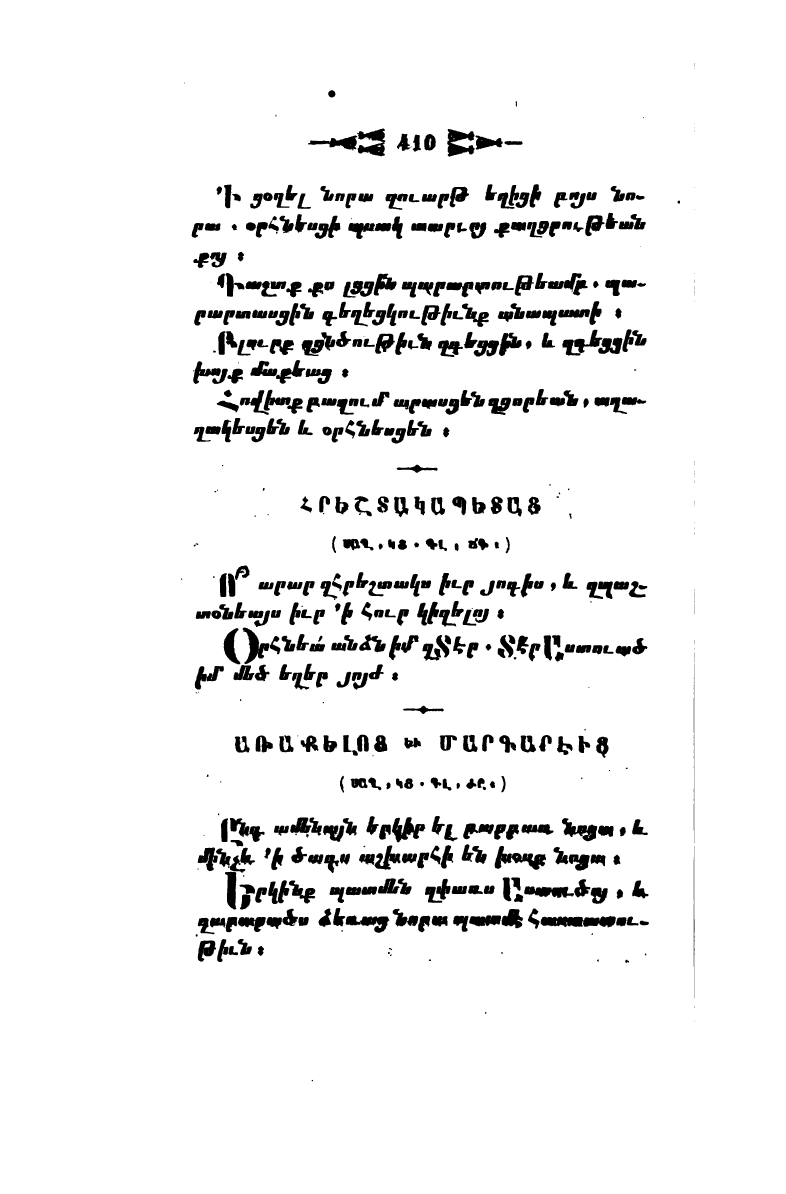 410
՚Ի ցօղել նորա զուարթ եղիցի բոյս նո-
րա . օրՀնեսցի պսակ տարւոյ քաղցրութեան
քոյ ։
Դաշտք քո լցցին պարարտութեամբ, պա-
րարտասցին գեղեցկութիւնք անապատի ։
Բլուրք զցնծութիւն զգեցցին, և զգեցցին
խոյք մաքեաց ։
Հովիտք բազում արասցեն զցորեան, աղա-
ղակեսցեն և օրՀնեսցեն ։
ՀՐԵՇՏԱԿԱՊԵՏԱՑ
( ՍԱՂ, ԿՑ . ԳԼ, ՃԳ ։ )
Ո՞ արար զՀրեշտակս իւր յոգիս, և զպաշ-
տօնեայս իւր ՚ի Հուր կիզելոյ ։
ՕրՀնեա՛ անձն իմ զՏէր . Տէր Աստուած
իմ մեծ եղեր յոյժ ։
ԱՌԱՔԵԼՈՑ ԵՒ ՄԱՐԳԱՐԷԻՑ
( ՍԱՂ, ԿՑ . ԳԼ, ԺԸ ։ )
Ընդ ամենայն երկիր ել բարբառ նոցա, և
մինչև ՚ի ծագս աշխարՀի են խօսք նոցա ։
Երկինք պատմեն զփառս Աստուծոյ, և
զարարածս ձեռաց նորա պատմէ Հաստատու-
թիւն ։